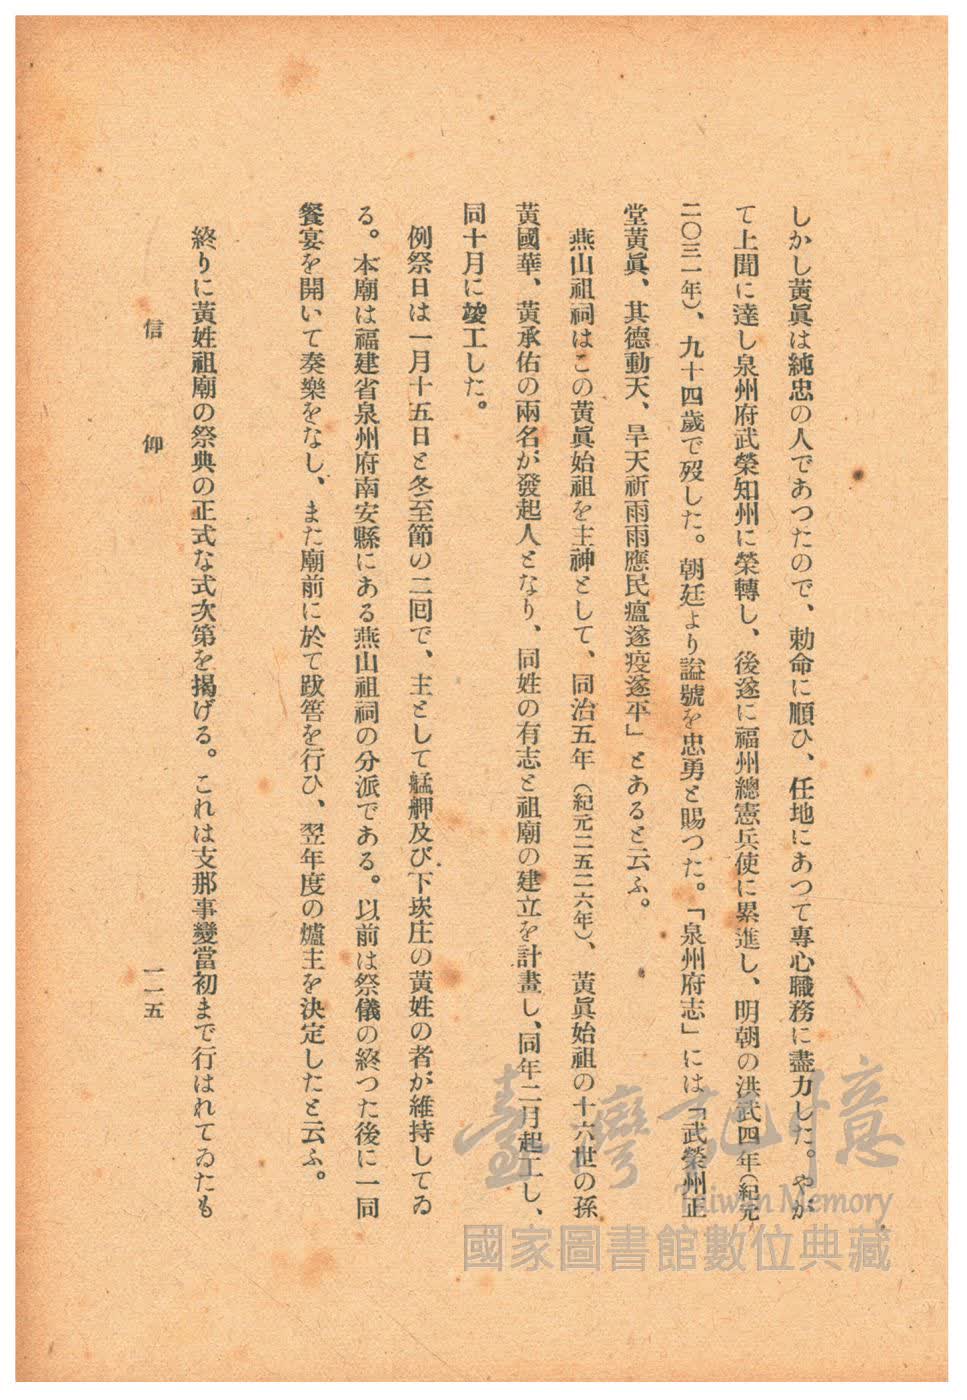 しかし黃眞は純忠の人であつたので、勅命に順ひ、任地にあつて專心職務に盡力した。やが
て上聞に達し泉州府武榮知州に榮轉し、後遂に福州總憲兵使に累進し、明朝の洪武四年（紀元
二〇三一年）、九十四歲で歿した。朝廷より謚號を忠勇と賜つた。「泉州府志」には「武榮州正
堂黃眞、其德動天、旱天祈雨雨應民瘟遂疫遂平」とあると云ふ。
燕山祖祠はこの黃眞始祖を主神として、同治五年（紀元二五二六年）、黃眞始祖の十六世の孫
黃國華、黃承佑の兩名が發起人となり、同姓の有志と祖廟の建立を計畫し、同年二月起工し、
同十月に竣工した。
例祭日は一月十五日と冬至節の二囘で、主として艋舺及び下崁庄の黃姓の者が維持してゐ
る。本廟は福建省泉州府南安縣にある燕山祖祠の分派である。以前は祭儀の終つた後に一同
餐宴を開いて奏樂をなし、また廟前に於て跋筶を行ひ、翌年度の爐主を決定したと云ふ。
終りに黃姓祖廟の祭典の正式な式次第を揭げる。これは支那事變當初まで行はれてゐたも
信仰
一二五
臺灣記憶
Taiwan Memory
國家圖書館數位典藏